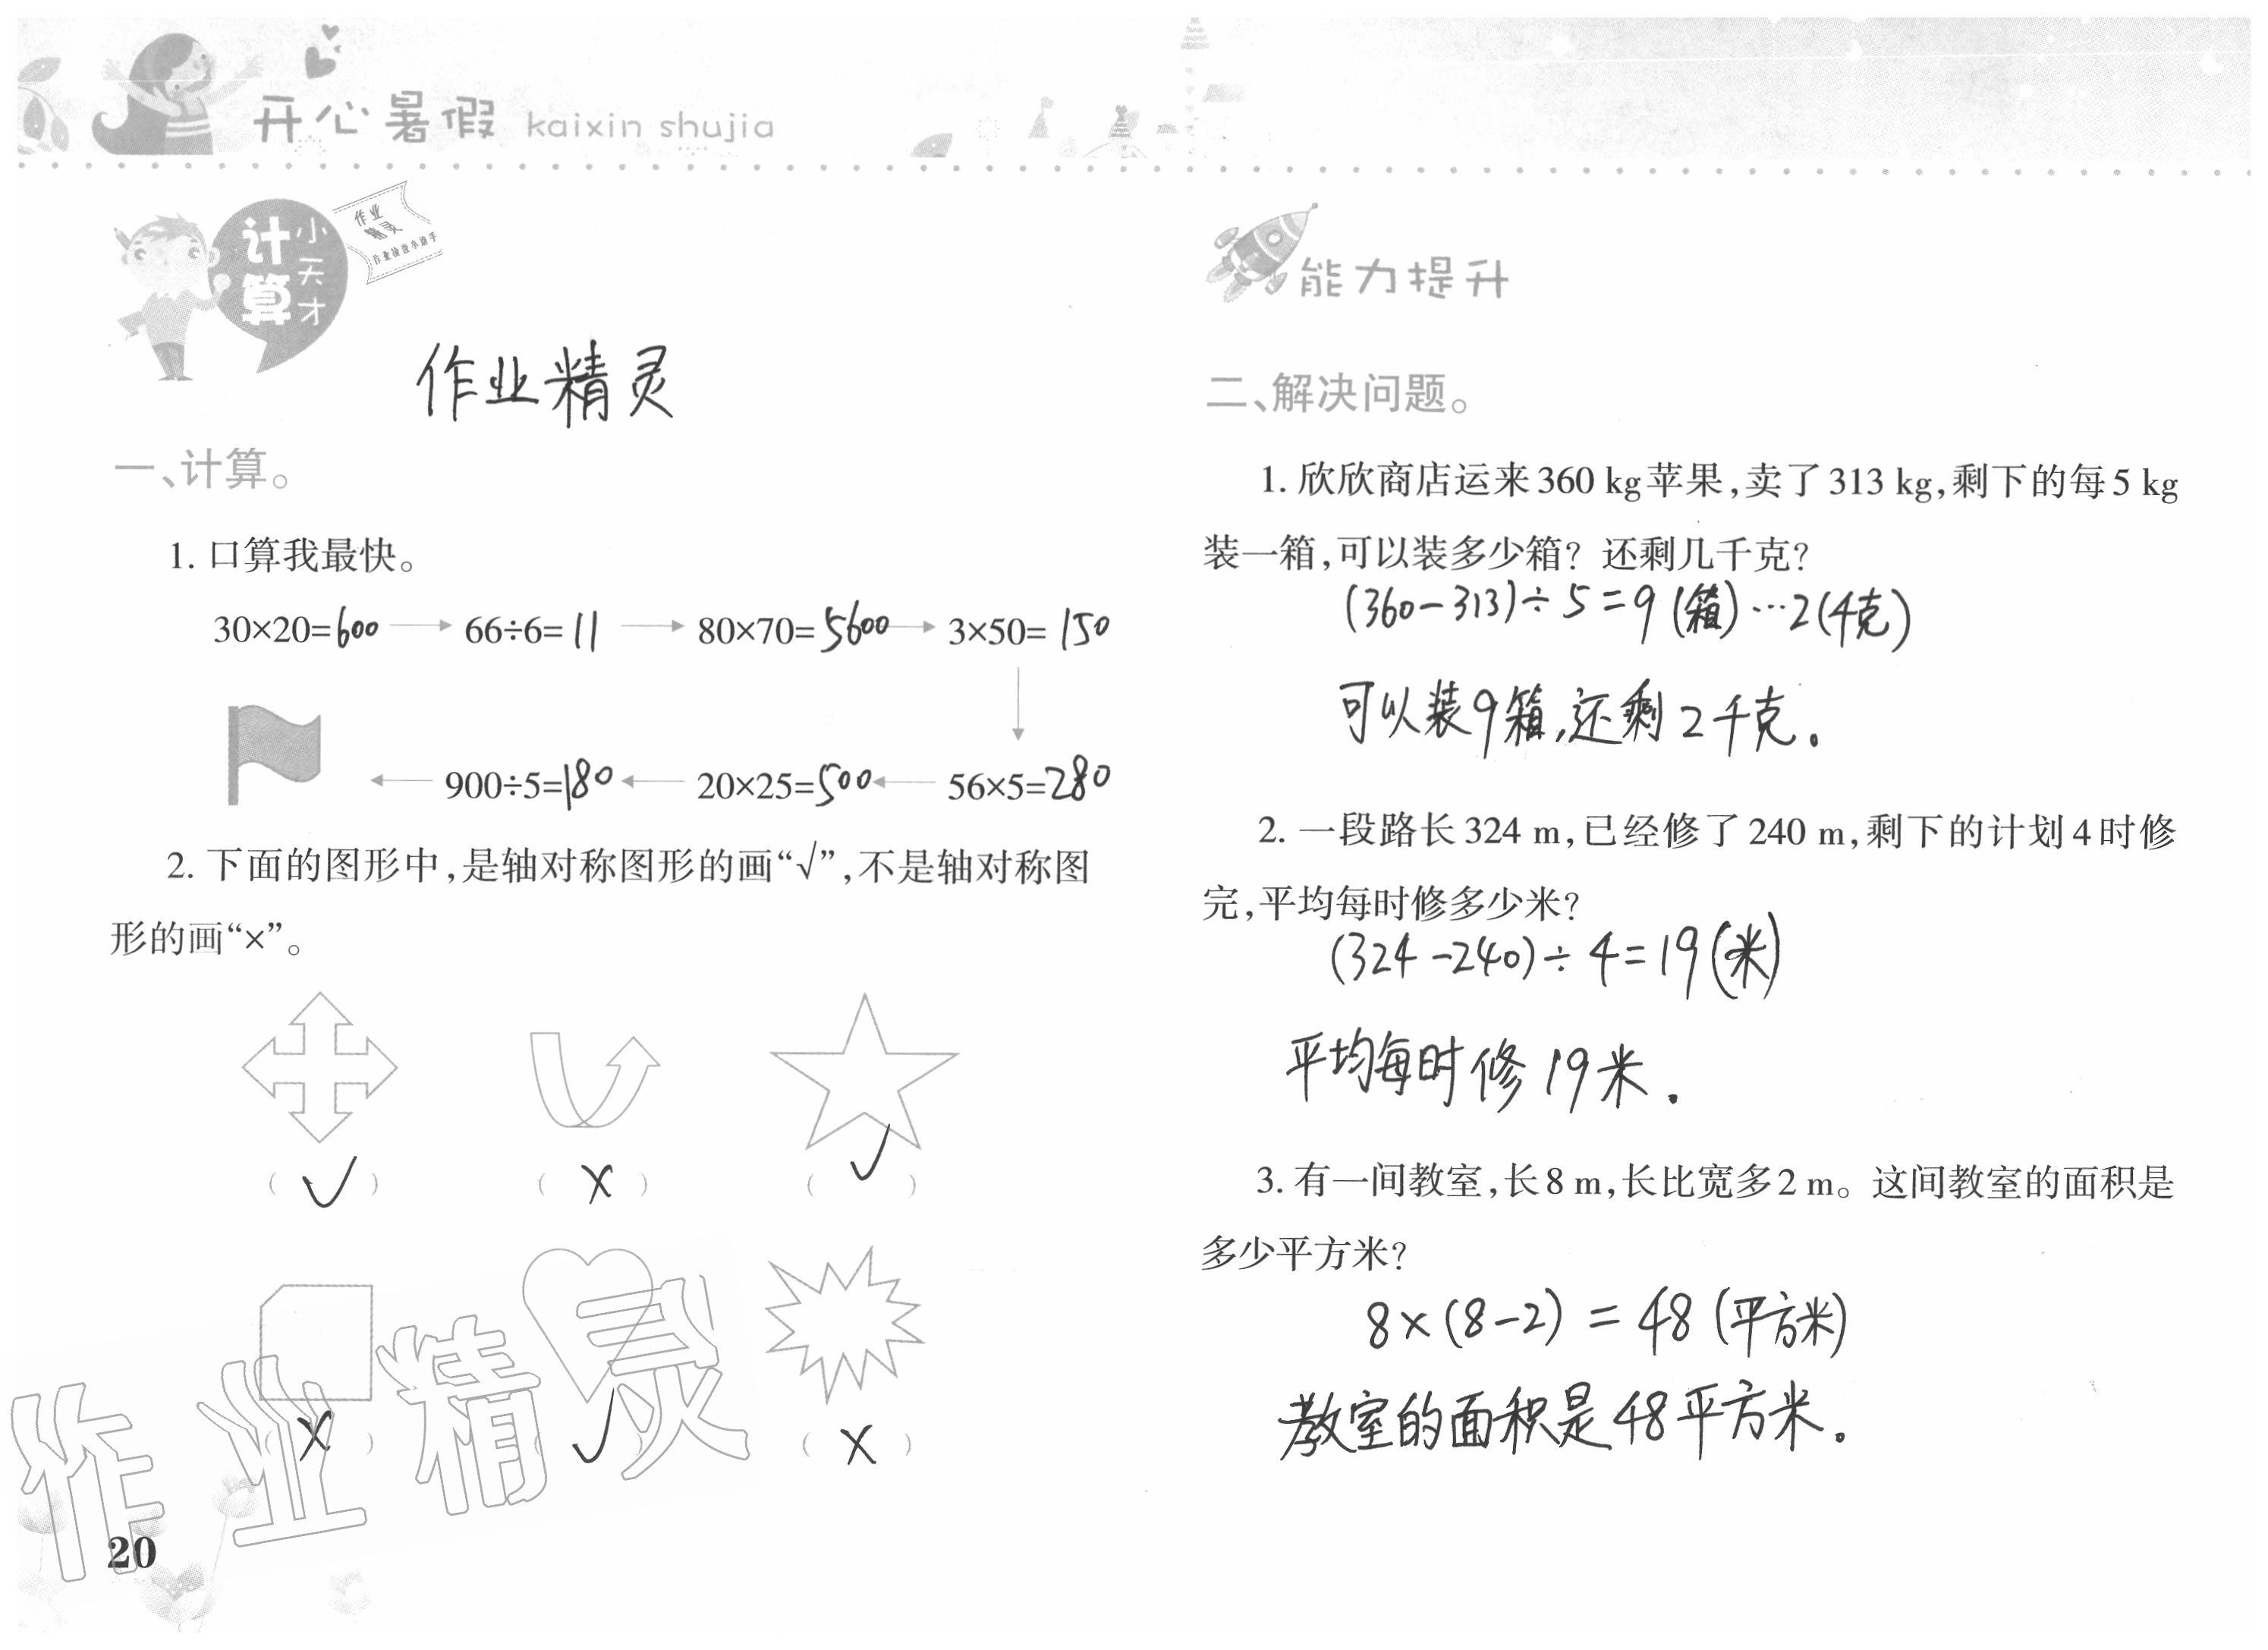 开心暑假 kaixin shujia
计算
小天才
作业
精灵
作业检查小助手
作业精灵
一、计算。
1. 口算我最快。
30×20=600 → 66÷6=11 → 80×70=5600 → 3×50=150
900÷5=180 ← 20×25=500 ← 56×5=280
2. 下面的图形中,是轴对称图形的画“√”,不是轴对称图
形的画“×”。
( √ ) ( × ) ( √ )
( × ) ( √ ) ( × )
作业精灵
20
能力提升
二、解决问题。
1. 欣欣商店运来360 kg苹果,卖了313 kg,剩下的每5 kg
装一箱,可以装多少箱? 还剩几千克?
(360-313)÷5=9(箱)…2(千克)
可以装9箱,还剩2千克。
2. 一段路长324 m,已经修了240 m,剩下的计划4时修
完,平均每时修多少米?
(324-240)÷4=19(米)
平均每时修19米.
3. 有一间教室,长8 m,长比宽多2 m。这间教室的面积是
多少平方米?
8×(8-2)=48(平方米)
教室的面积是48平方米。